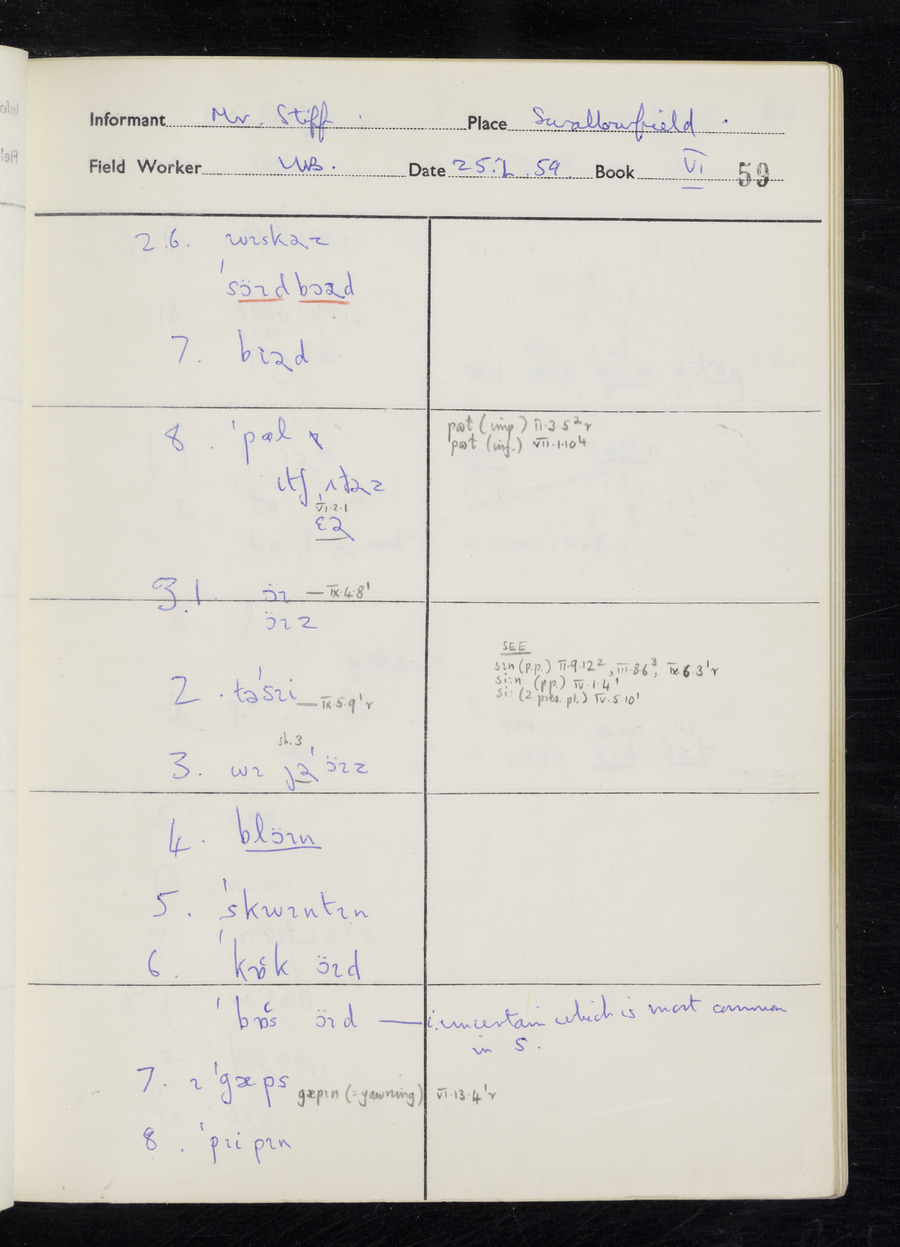 Informant Mr. Stiff. Place Swallowfield.
Field Worker WB. Date 25.2.59. Book VI 59
2.6. wɪskəz
ˈsöɪdbɔəd
7. bɪəd
8. ˈpəl
VI·2·1
ɛə
pət (imp) II·3·5²r
pət (inf.) VII·1·10⁴
3.1 öɪ — IX·4·8¹
öɪz
2. təˈsɪi — IX·5·9¹r
SEE
sɪn (p.p.) II·9·12², III·8·6³, IX·6·3¹r
si:n (p.p.) IV·1·4¹
si: (2 pres. pl.) IV·5·10¹
sh.3
3. wɪ jəˈ öɪz
4. blöɪn
5. ˈskwɪntɪn
6. ˈkɒk öɪd
ˈbɒs öɪd — i. uncertain which is most common
in S.
7. ɪ ˈgæps gæpɪn (=yawning) VI·13·4¹r
8. ˈpɪi pɪn